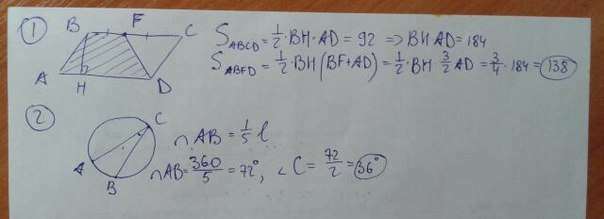 1
B F C
A H D
S_ABCD = 1/2 · BH · AD = 92 ⇒ BH AD = 184
S_ABFD = 1/2 · BH (BF + AD) = 1/2 · BH 3/2 AD = 3/4 · 184 = 138
2
C
A
B
∩ AB = 1/5 l
∩ AB = 360/5 = 72°, ∠ C = 72/2 = 36°